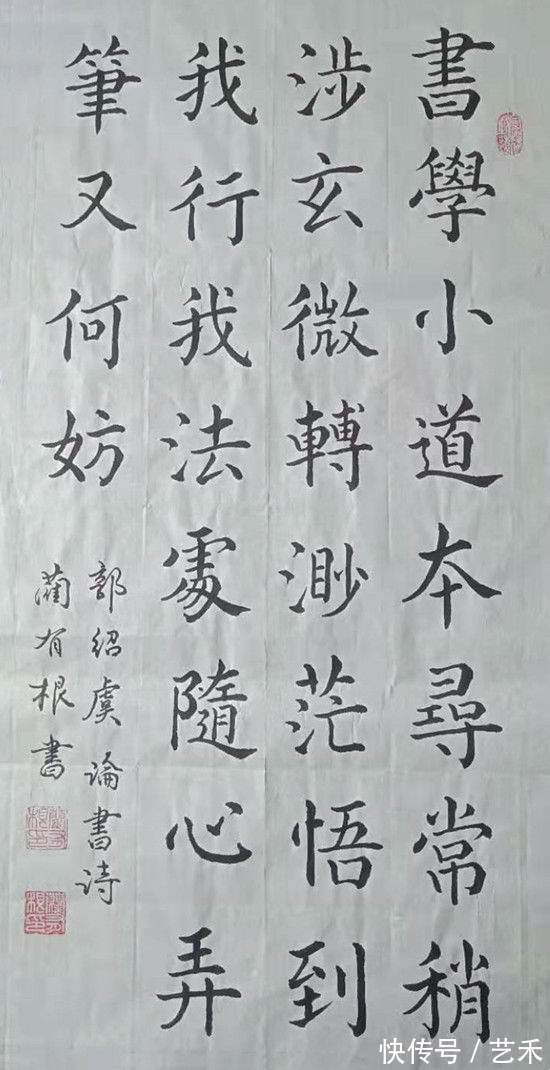 書學小道本尋常稍
涉玄微轉渺茫悟到
我行我法處隨心弄
筆又何妨
郭紹虞論書詩
蔺有根書
快传号/艺禾